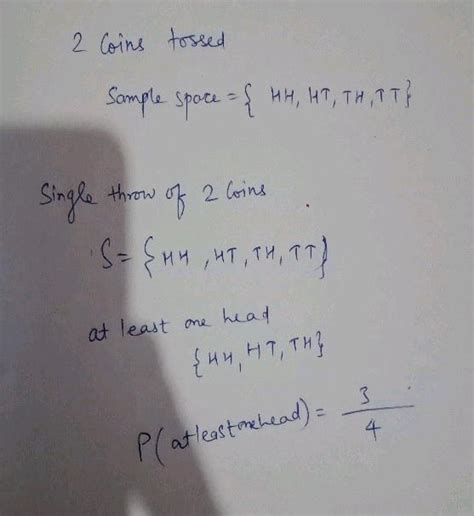 2 Coins tossed
Sample space = { HH, HT, TH, TT}
Single throw of 2 Coins
S = { HH , HT, TH, TT}
at least one head
{HH, HT, TH}
P(atleastonehead) = 3/4